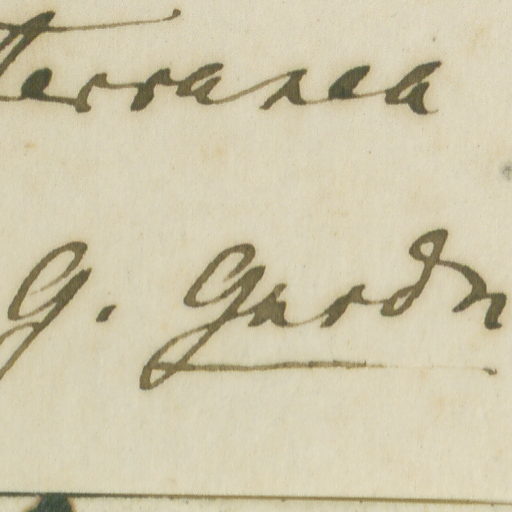 terranea
G. Gardn